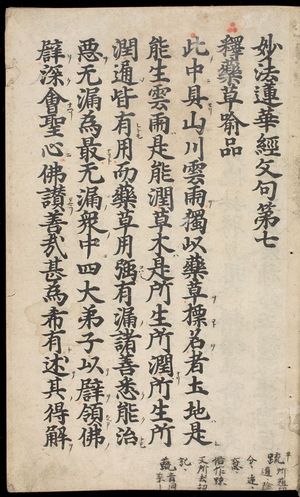 妙法蓮華經文句第七
釋藥草喻品
此中具山川雲雨獨以藥草標名者土地是
能生雲雨是能潤草木是所生所潤所生所
潤通皆有用而藥草用強有漏諸善悉能治
惡无漏為最无漏衆中四大弟子以譬領佛
譬深會聖心佛讃善哉甚為希有述其得解